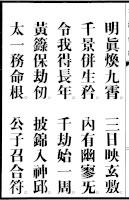 明眞煥九霄　三日映玄敷
千景併生矜　内有幽寥旡
令我得長年　千劫始一周
黃籙保劫仞　披錦入神邱
太一務命根　公子召合符